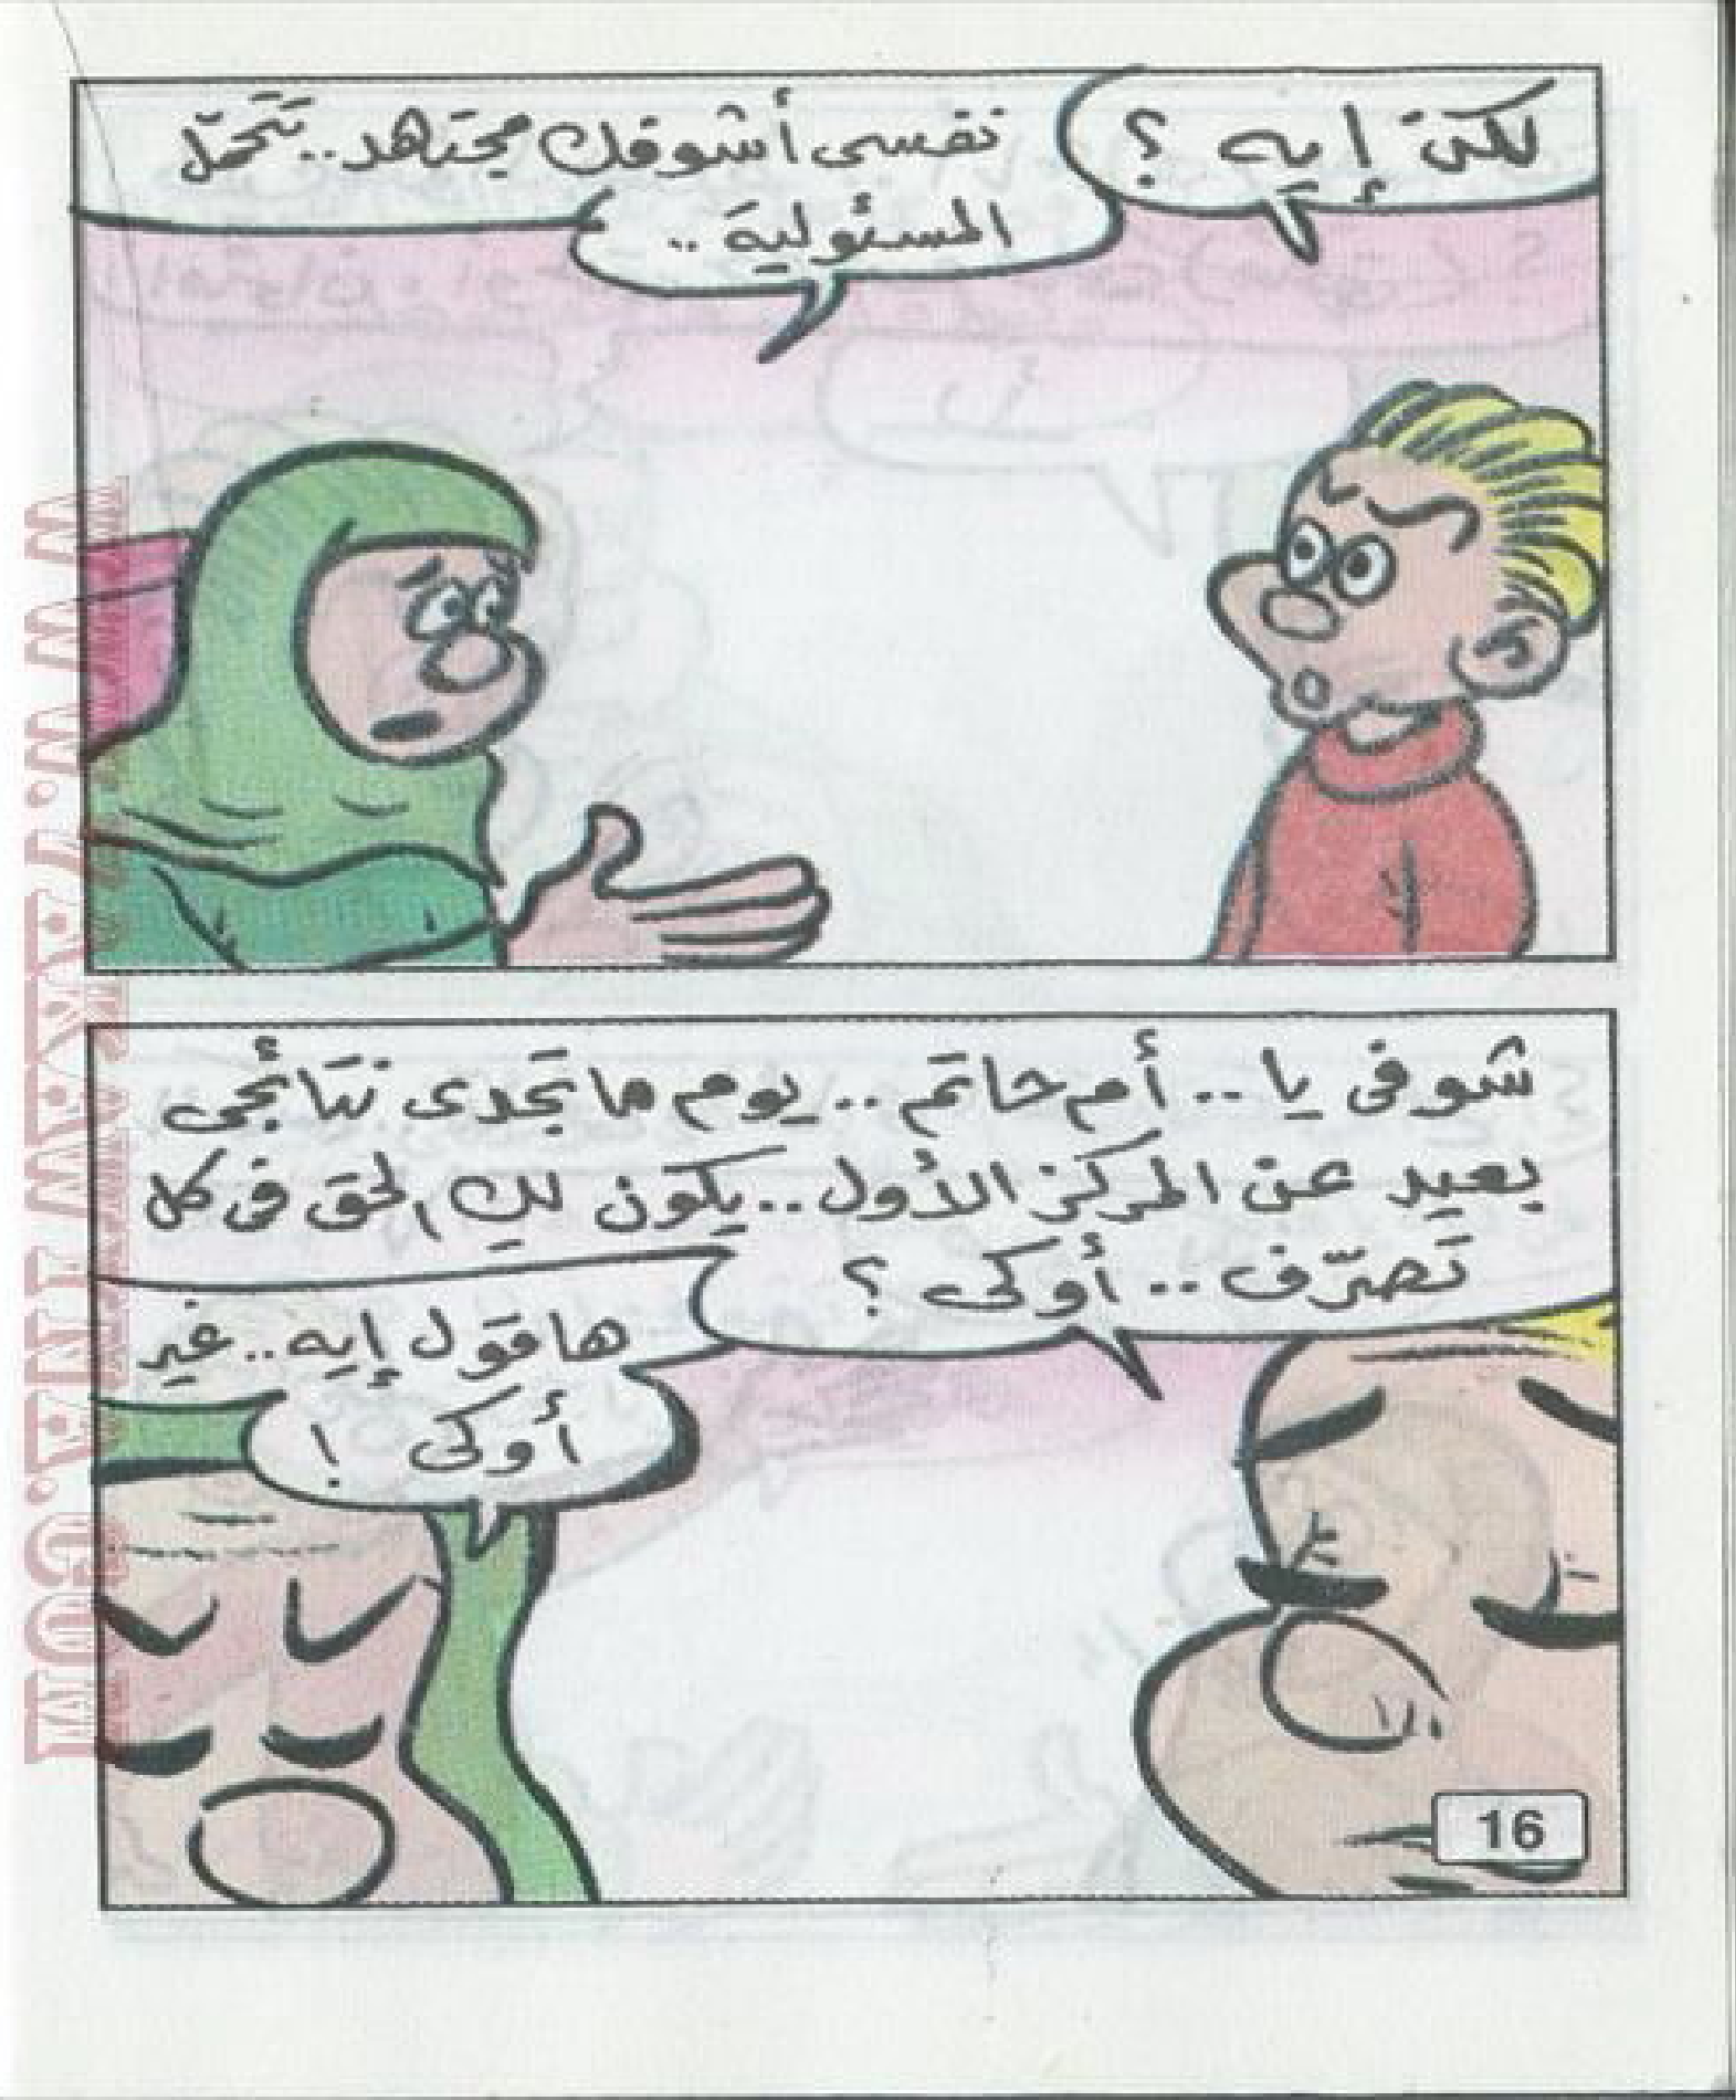 لكن إيه ؟
نفسى أشوفك مجتهد .. تتحمّل
المسئولية ..
شوفى يا .. أم حاتم .. يوم ما تجدى نتائجى
بعيد عن المركز الأول .. يكون لكِ الحق فى كل
تصرّف .. أوكى ؟
هاقول إيه .. غير
أوكى !
16